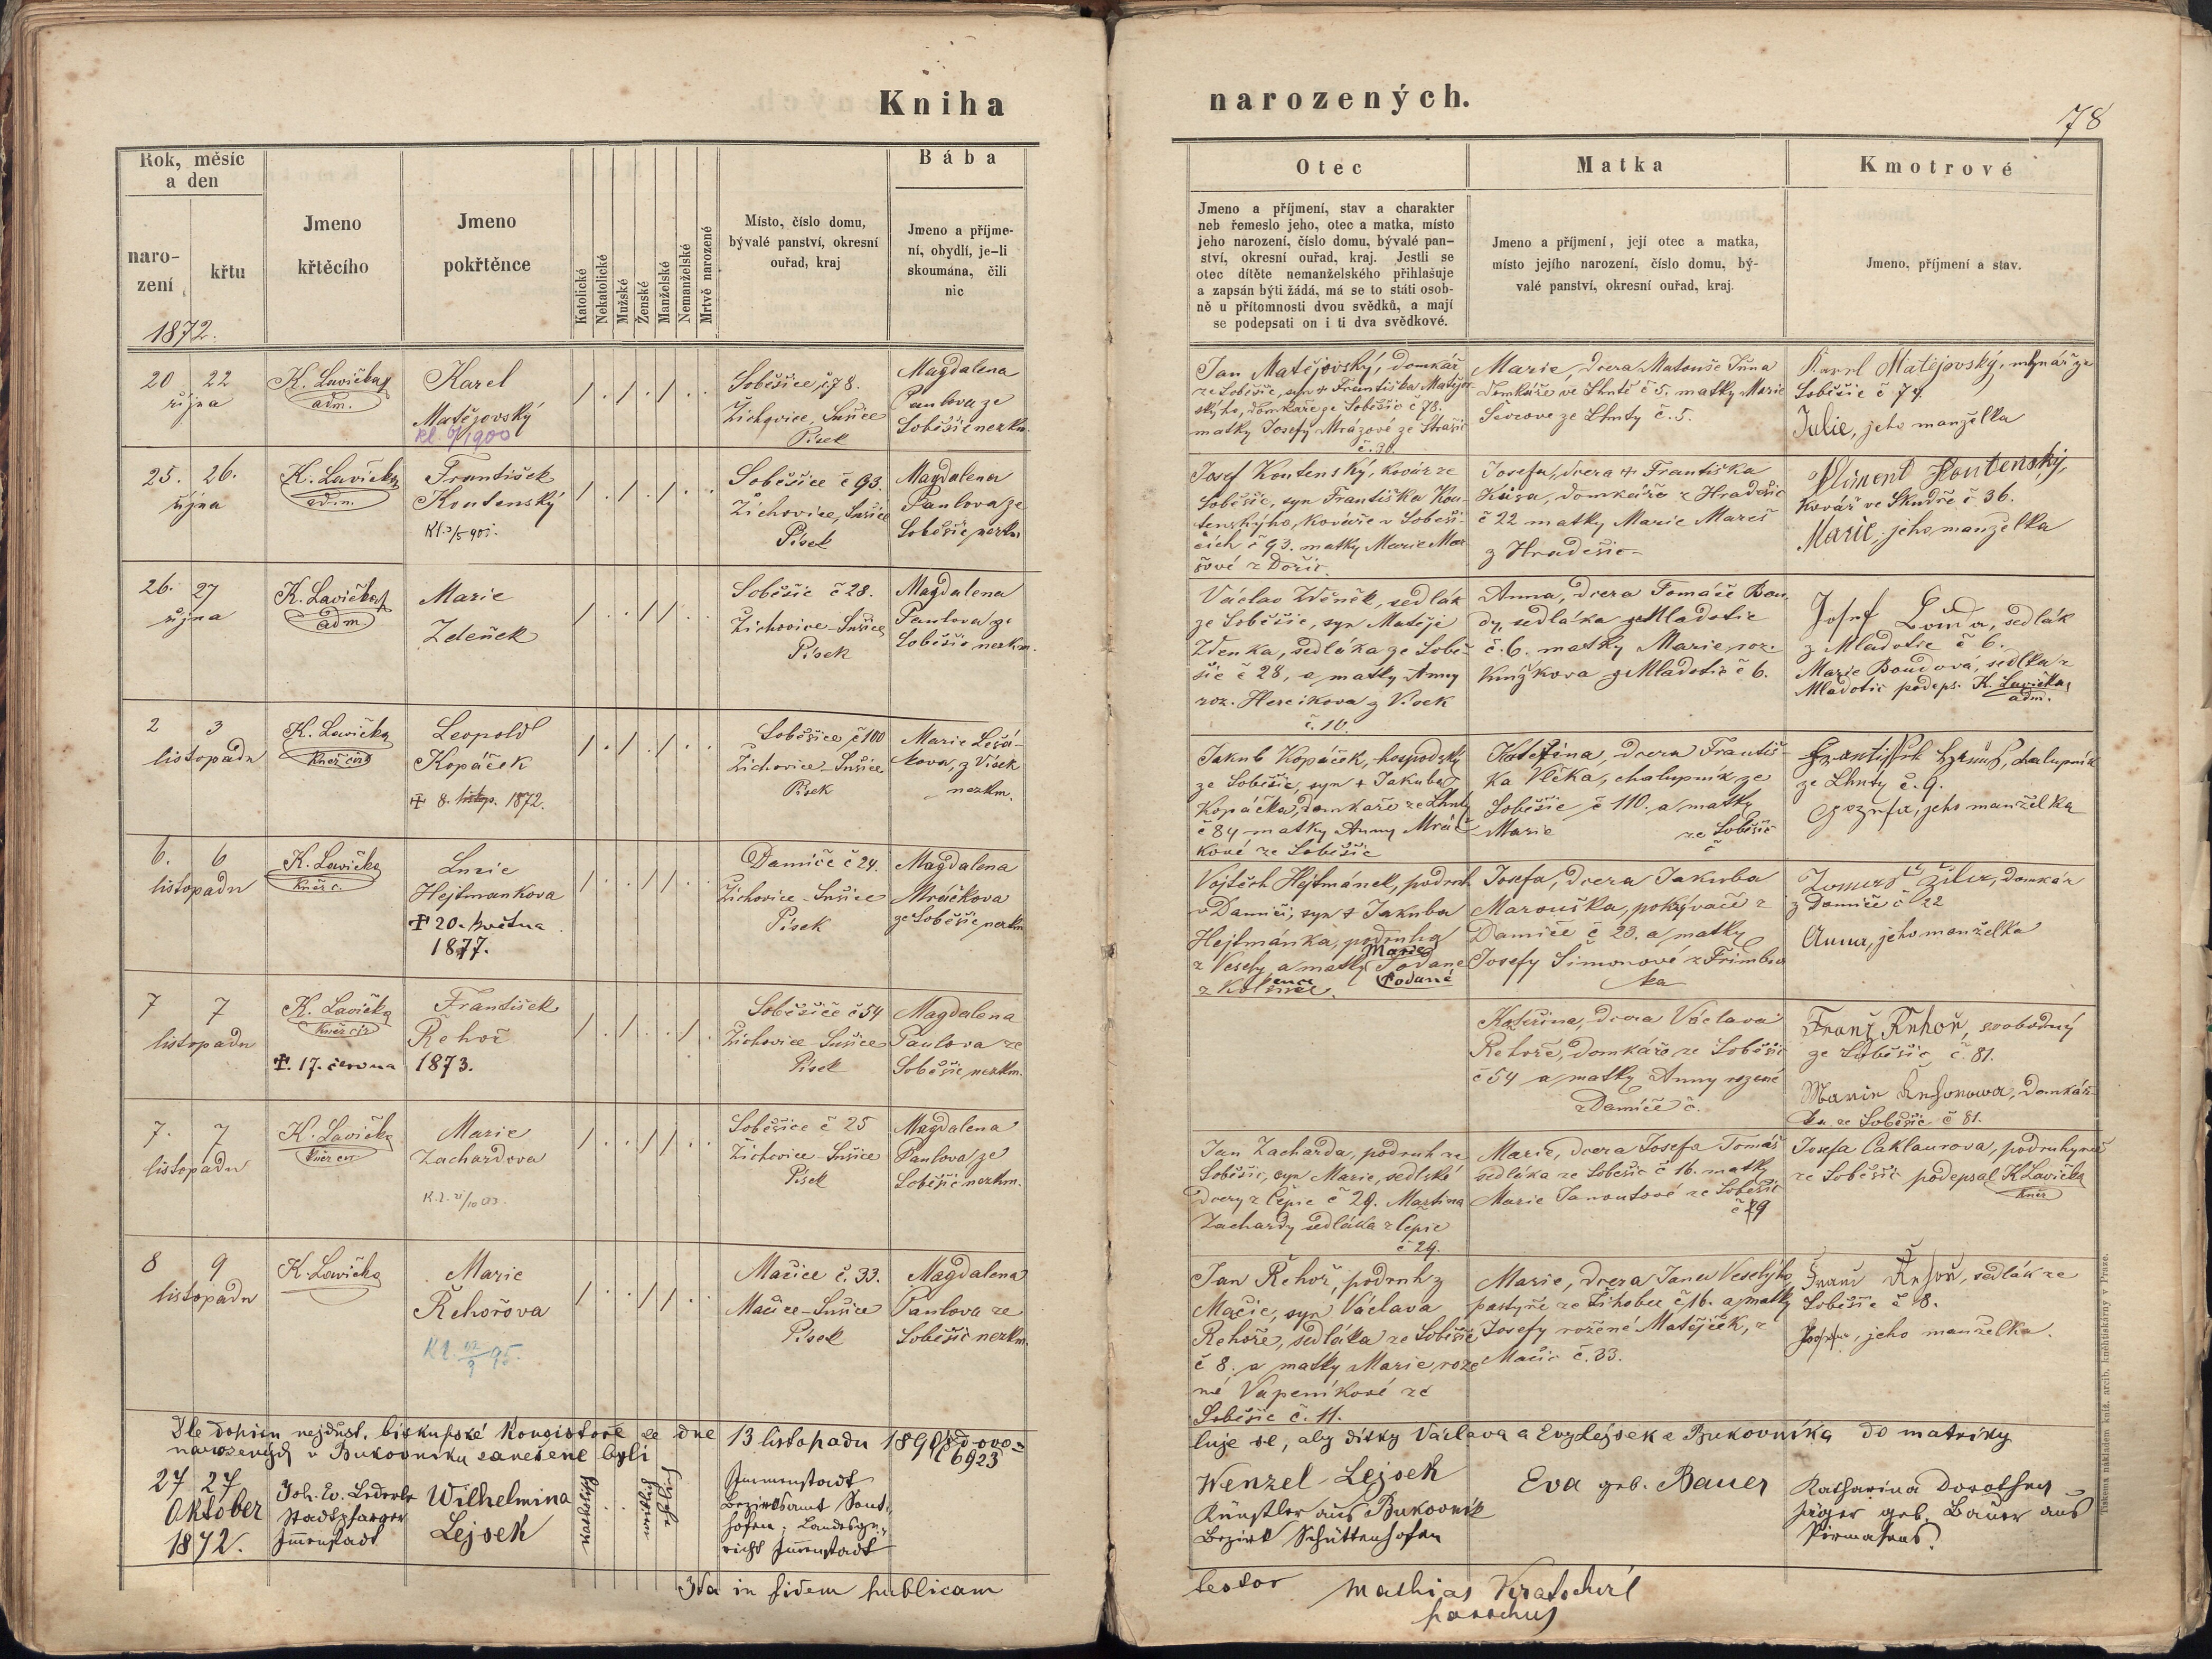 Kniha
narozených.
78
Rok, měsíc
a den
naro-
zení
křtu
1872.
Jmeno
křtěcího
Jmeno
pokřtěnce
Katolické
Nekatolické
Mužské
Ženské
Manželské
Nemanželské
Mrtvě narozené
Místo, číslo domu,
bývalé panství, okresní
ouřad, kraj
Bába
Jmeno a příjme-
ní, obydlí, je-li
skoumána, čili
nic
Otec
Jmeno a příjmení, stav a charakter
neb řemeslo jeho, otec a matka, místo
jeho narození, číslo domu, bývalé pan-
ství, okresní ouřad, kraj. Jestli se
otec dítěte nemanželského přihlašuje
a zapsán býti žádá, má se to státi osob-
ně u přítomnosti dvou svědků, a mají
se podepsati on i ti dva svědkové.
Matka
Jmeno a příjmení, její otec a matka,
místo jejího narození, číslo domu, bý-
valé panství, okresní ouřad, kraj.
Kmotrové
Jmeno, příjmení a stav.
20 22
října
K. Lavička
adm.
Karel
Matějovský
Soběšice, č 78.
Žichovice, Sušice
Písek
Magdalena
Paulova ze
Soběšic nezkm.
Jan Matějovský, domkář
ze Soběšic, syn + Františka Matějov-
ského, domkáře ze Soběšic č 78.
matky Josefy Mrázové ze Strašic
Marie, dcera Matouše
domkáře ve Lhotě č 5, matky Marie
ze Lhoty č. 5.
Karel Matějovský, mlynář ze
Soběšic č 74.
Julie, jeho manželka
25. 26.
října
K. Lavička
adm.
František
Koutenský
Soběšice č 93
Žichovice, Sušice
Písek
Magdalena
Paulova ze
Soběšic nezkm
Josef Koutenský, kovář ze
Soběšic, syn Františka Kou-
tenského, kováře v Soběši-
cích č 93. matky Marie
Josefa, dcera + Františka
domkáře z Hradešic
č 22 matky Marie Mareš
z Hradešic
Kliment Koutenský,
kovář ve č 36.
Marie, jeho manželka
26. 27
října
K. Lavička
adm
Marie
Zdeněk
Soběšic č 28.
Žichovice-Sušice
Písek
Magdalena
Paulova ze
Soběšic nezkm.
Václav Zděněk, sedlák
ze Soběšic, syn Matěje
Zdenka, sedláka ze Sobě-
šic č 28, a matky Anny
roz. z Vísek
č. 10.
Anna, dcera Tomáše Bou-
dy, sedláka z Mladotic
č. 6. matky Marie, roz.
z Mladotic č 6.
Josef Bouda, sedlák
z Mladotic č 6.
Marie Boudová, sedlka z
Mladotic podeps. K. Lavička
adm.
2 3
listopadu
K. Lavička
Kněz círk
Leopold
Kopáček
+ 8. listop. 1872.
Soběšice, č 100
Žichovice-Sušice
Písek
Marie
z Vísek
nezkm.
Jakub Kopáček, hospodský
ze Soběšic, syn + Jakuba
Kopáčka, domkáře ze Lhoty
č 84 matky Anny Mráč-
kové ze Soběšic
Kateřina, dcera Františ-
ka Vlčka, chalupník ze
Soběšic č 110. a matky
Marie ze Soběšic
č
chalupník
ze Lhoty č. 9.
Jozefa, jeho manželka
6. 6
listopadu
K. Lavička
Kněz c.
Lucie
Hejtmankova
+ 20. května
1877.
Damíče č 24.
Žichovice-Sušice
Písek
Magdalena
Mráčkova
ze Soběšic nezkm
Vojtěch Hejtmánek, podruh
v Damíči, syn + Jakuba
Hejtmánka, podruha
z Vesely, a matky
Marie
Podané
Josefa, dcera Jakuba
Marouška, pokrývače z
Damíče č 23. a matky
Josefy Šimonové
domkář
z Damíče č 22
Anna, jeho manželka
7 7
listopadu
K. Lavička
Kněz círk
František
Řehoř
+. 17. června 1873.
Soběšice č 54
Žichovice Sušice
Písek
Magdalena
Paulova ze
Soběšic nezkm.
Kateřina, dcera Václava
Řehoře, domkáře ze Soběšic
č 54 a matky Anny rozené
z Damíče č.
Franz Řehoř, svobodný
ze Soběšic, č. 81.
Marie Řehorowa, domkář-
ka ze Soběšic č 81.
7. 7
listopadu
K. Lavička
Kněz círk
Marie
Zachardova
Soběšice č 25
Žichovice-Sušice
Písek
Magdalena
Paulova ze
Soběšic nezkm.
Jan Zacharda, podruh ze
Soběšic, syn Marie, sedlské
dcery z Čepic č 29. Martina
Zachardy sedláka z Čepic
č 29.
Marie, dcera Josefa Tomáš
sedláka ze Soběšic č 16. matky
Marie Janoutové ze Soběšic
č 29
Josefa Caklaurova, podruhyně
ze Soběšic podepsal K Lavička
Kněz
8 9
listopadu
K. Lavička
Marie
Řehořova
Mačice č. 33.
Mačice-Sušice
Písek
Magdalena
Paulova ze
Soběšic nezkm.
Jan Řehoř, podruh z
Mačic, syn Václava
Řehoře, sedláka ze Soběšic
č 8. a matky Marie, roze
né Vápeníkové ze
Soběšic č. 11.
Marie, dcera Jana Veselýho,
pastýře ze Žihobec č 16. a matky
Josefy rozené Matějček, z
Mačic č. 33.
Franz Řehoř, sedlák ze
Soběšic č 8.
Josefa, jeho manželka.
Dle dopisu nejdůst. biskupské Konsistoře ze dne 13 listopadu 1890 dovo-
luje se, aby dítky Václava a Evy Lejsek z Bukovníka do matriky
narozených v Bukovníku zanešené byli
6923
27 27
Oktober
1872.
Joh. Ev.
Stadtpfarrer
Immenstadt
Wilhelmina
Lejsek
Immenstadt
Bezirksamt Sont-
hofen, Landesge-
richt Immenstadt
Wenzel Lejsek
Künstler aus Bukovník
Bezirk Schüttenhofen
Eva geb. Bauer
Katharina Dorothea
Jäger geb. Bauer aus
Pirmasens.
Ita in fidem publicam
testor Mathias Kratochvíl
parochus
Tiskem a nákladem kníž. arcib. knihtiskárny v Praze.